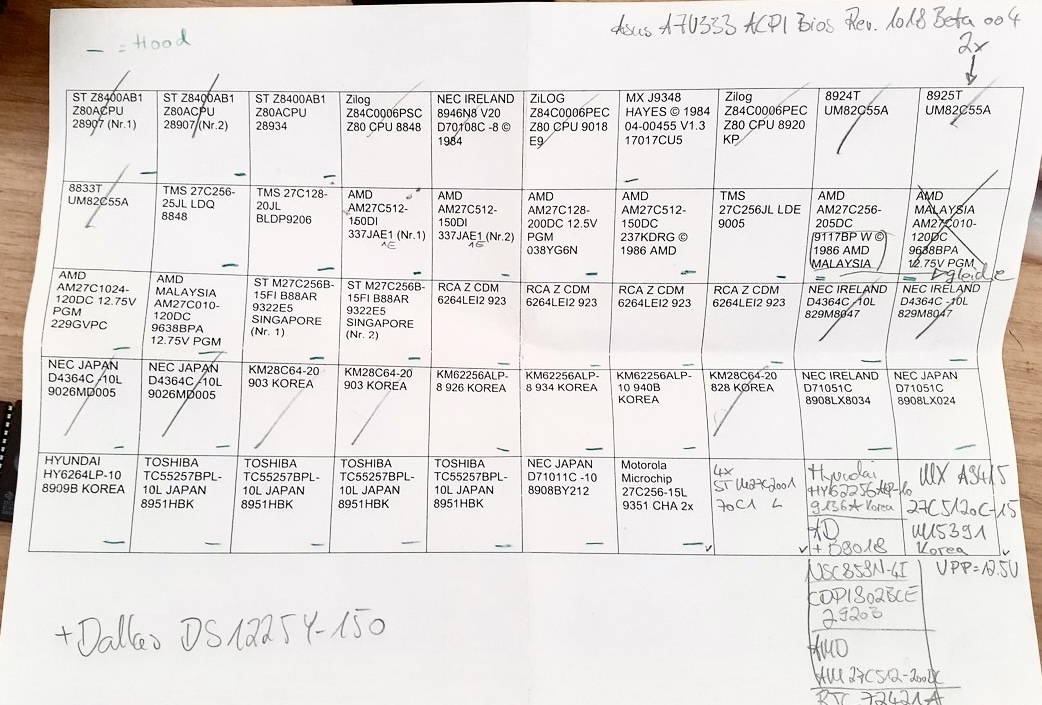 Asus A7V333 ACPI Bios Rev. 1018 Beta 004
— = Hood
2x
ST Z8400AB1
Z80ACPU
28907 (Nr.1)
ST Z8400AB1
Z80ACPU
28907 (Nr.2)
ST Z8400AB1
Z80ACPU
28934
Zilog
Z84C0006PSC
Z80 CPU 8848
NEC IRELAND
8946N8 V20
D70108C -8 ©
1984
ZiLOG
Z84C0006PEC
Z80 CPU 9018
E9
MX J9348
HAYES © 1984
04-00455 V1.3
17017CU5
Zilog
Z84C0006PEC
Z80 CPU 8920
KP
8924T
UM82C55A
8925T
UM82C55A
8833T
UM82C55A
TMS 27C256-
25JL LDQ
8848
TMS 27C128-
20JL
BLDP9206
AMD
AM27C512-
150DI
337JAE1 (Nr.1)
1E
AMD
AM27C512-
150DI
337JAE1 (Nr.2)
1E
AMD
AM27C128-
200DC 12.5V
PGM
038YG6N
AMD
AM27C512-
150DC
237KDRG ©
1986 AMD
TMS
27C256JL LDE
9005
AMD
AM27C256-
205DC
9117BP W ©
1986 AMD
MALAYSIA
AMD
MALAYSIA
AM27C010-
120DC
9638BPA
12.75V PGM
AMD
AM27C1024-
120DC 12.75V
PGM
229GVPC
AMD
MALAYSIA
AM27C010-
120DC
9638BPA
12.75V PGM
ST M27C256B-
15FI B88AR
9322E5
SINGAPORE
(Nr. 1)
ST M27C256B-
15FI B88AR
9322E5
SINGAPORE
(Nr. 2)
RCA Z CDM
6264LEI2 923
RCA Z CDM
6264LEI2 923
RCA Z CDM
6264LEI2 923
RCA Z CDM
6264LEI2 923
NEC IRELAND
D4364C -10L
829M8047
NEC IRELAND
D4364C -10L
829M8047
NEC JAPAN
D4364C -10L
9026MD005
NEC JAPAN
D4364C -10L
9026MD005
KM28C64-20
903 KOREA
KM28C64-20
903 KOREA
KM62256ALP-
8 926 KOREA
KM62256ALP-
8 934 KOREA
KM62256ALP-
10 940B
KOREA
KM28C64-20
828 KOREA
NEC IRELAND
D71051C
8908LX8034
NEC JAPAN
D71051C
8908LX024
HYUNDAI
HY6264LP-10
8909B KOREA
TOSHIBA
TC55257BPL-
10L JAPAN
8951HBK
TOSHIBA
TC55257BPL-
10L JAPAN
8951HBK
TOSHIBA
TC55257BPL-
10L JAPAN
8951HBK
TOSHIBA
TC55257BPL-
10L JAPAN
8951HBK
NEC JAPAN
D71011C -10
8908BY212
Motorola
Microchip
27C256-15L
9351 CHA 2x
4x
ST M27C2001
70C1 L
Hyundai
HY62256ALP-10
9136A Korea
+ D8018
MX A3415
27C512DC-15
M15391
Korea
VPP=12.5V
NSC859N-4I
CDP1802BCE
2920B
AMD
AM27C512-200DC
RTC 72421A
+Dallas DS1225Y-150